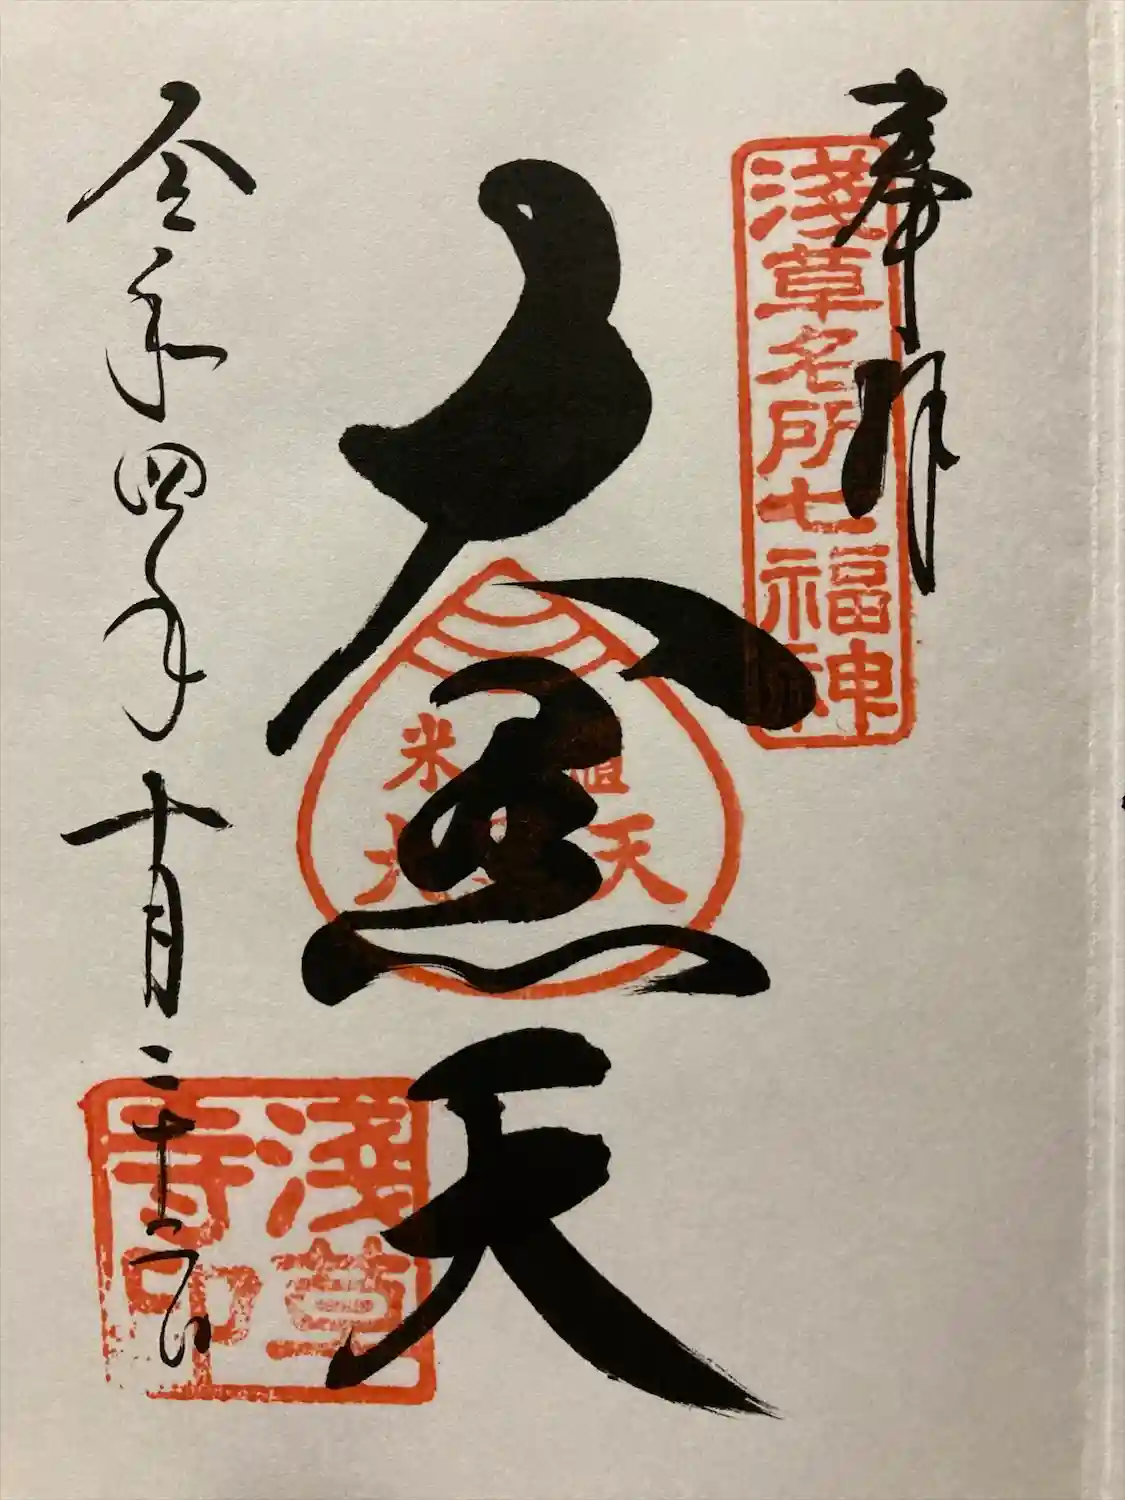 奉拝
淺草名所七福神
大黒天
令和四年十月二十二日
淺草
寺印